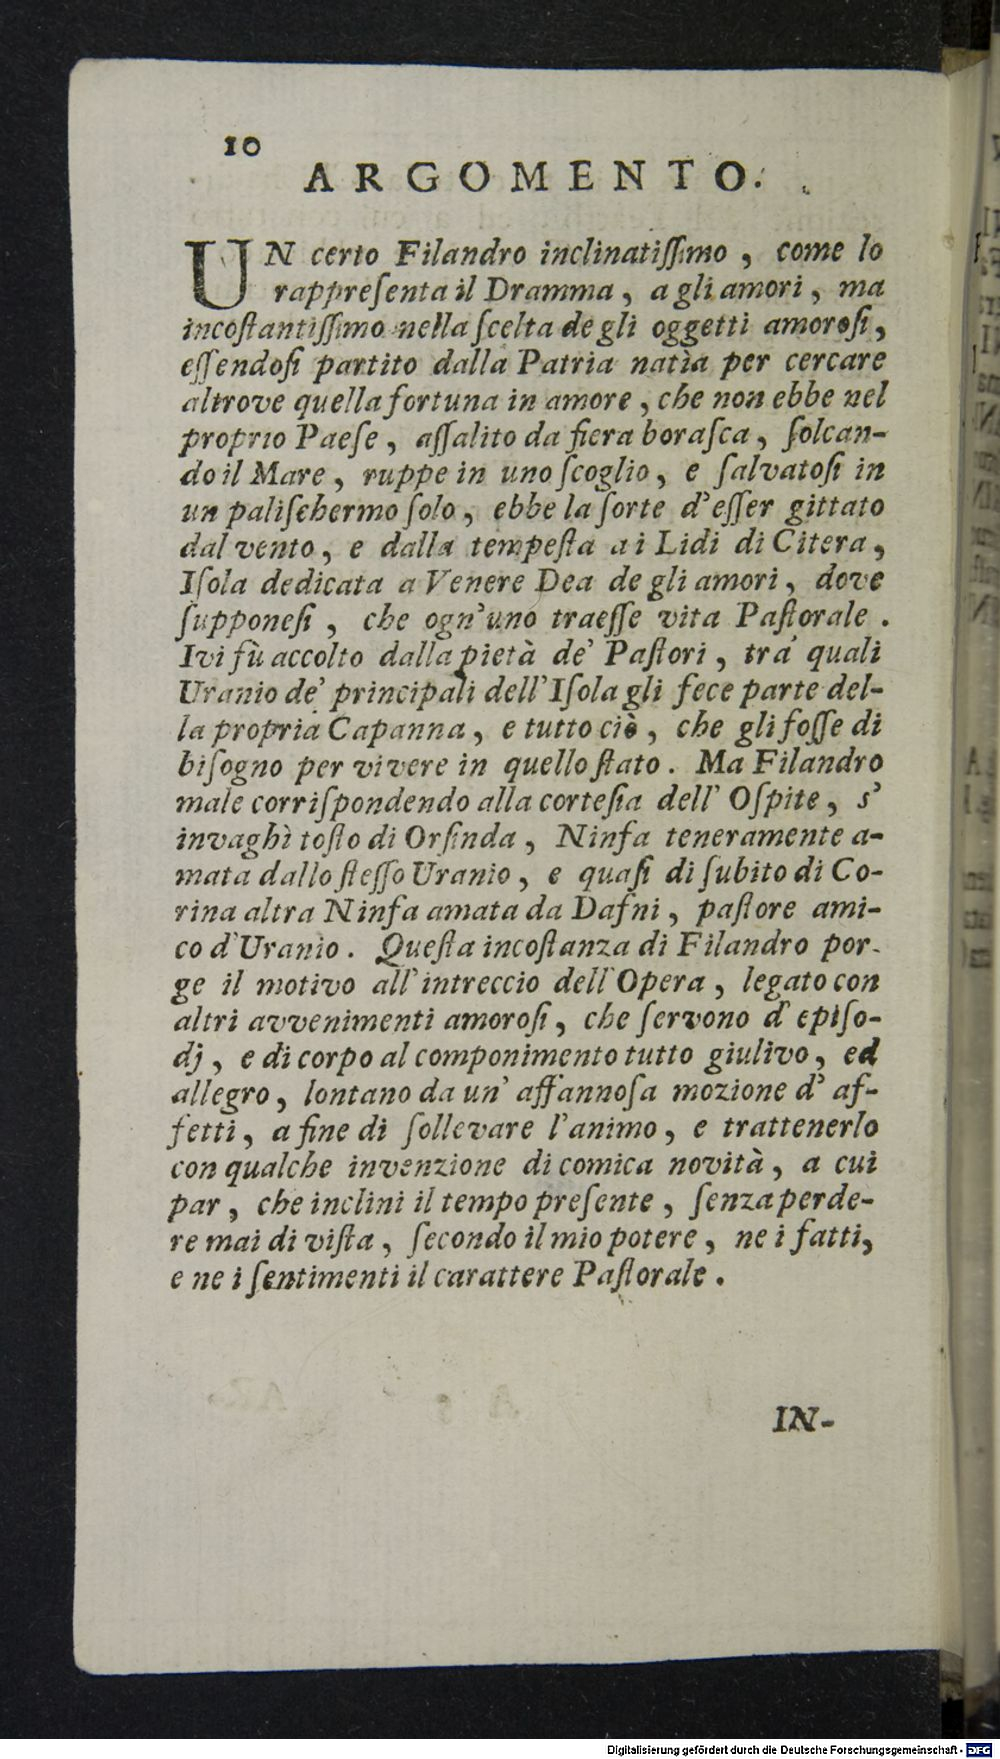 10
ARGOMENTO.
UN certo Filandro inclinatiſſimo, come lo
rappreſenta il Dramma, a gli amori, ma
incoſtantiſſimo nella ſcelta de gli oggetti amoroſi,
eſſendoſi partito dalla Patria natìa per cercare
altrove quella fortuna in amore, che non ebbe nel
proprio Paeſe, aſſalito da fiera boraſca, ſolcan-
do il Mare, ruppe in uno ſcoglio, e ſalvatoſi in
un paliſchermo ſolo, ebbe la ſorte d'eſſer gittato
dal vento, e dalla tempeſta ai Lidi di Citera,
Iſola dedicata a Venere Dea de gli amori, dove
ſupponeſi, che ogn'uno traeſſe vita Paſtorale.
Ivi fù accolto dalla pietà de' Paſtori, tra' quali
Uranio de' principali dell'Iſola gli fece parte del-
la propria Capanna, e tutto ciò, che gli foſſe di
biſogno per vivere in quello ſtato. Ma Filandro
male corriſpondendo alla corteſia dell' Oſpite, s'
invaghì toſto di Orſinda, Ninfa teneramente a-
mata dallo ſteſſo Uranio, e quaſi di ſubito di Co-
rina altra Ninfa amata da Dafni, paſtore ami-
co d'Uranio. Queſta incoſtanza di Filandro por-
ge il motivo all'intreccio dell'Opera, legato con
altri avvenimenti amoroſi, che ſervono d' epiſo-
dj, e di corpo al componimento tutto giulivo, ed
allegro, lontano da un' affannoſa mozione d' af-
fetti, a fine di ſollevare l'animo, e trattenerlo
con qualche invenzione di comica novità, a cui
par, che inclini il tempo preſente, ſenza perde-
re mai di viſta, ſecondo il mio potere, ne i fatti,
e ne i ſentimenti il carattere Paſtorale.
IN-
Digitalisierung gefördert durch die Deutsche Forschungsgemeinschaft - DFG